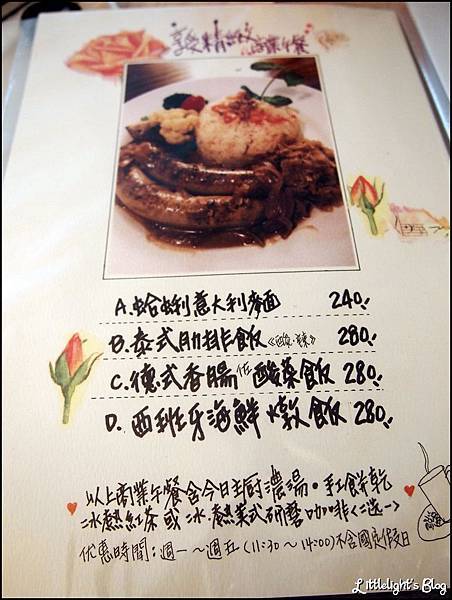 享精緻商業午餐
A.蛤蜊意大利麵 240.
B.泰式肋排飯《酸.辣》 280.
C.德式香腸佐酸菜飯 280.
D.西班牙海鮮燉飯 280.
以上商業午餐含今日主廚濃湯。手工餅乾
冰.熱紅茶或冰.熱美式研磨咖啡<二選一>
優惠時間：週一～週五(11:30～14:00)不含國定假日
Littlelight's Blog